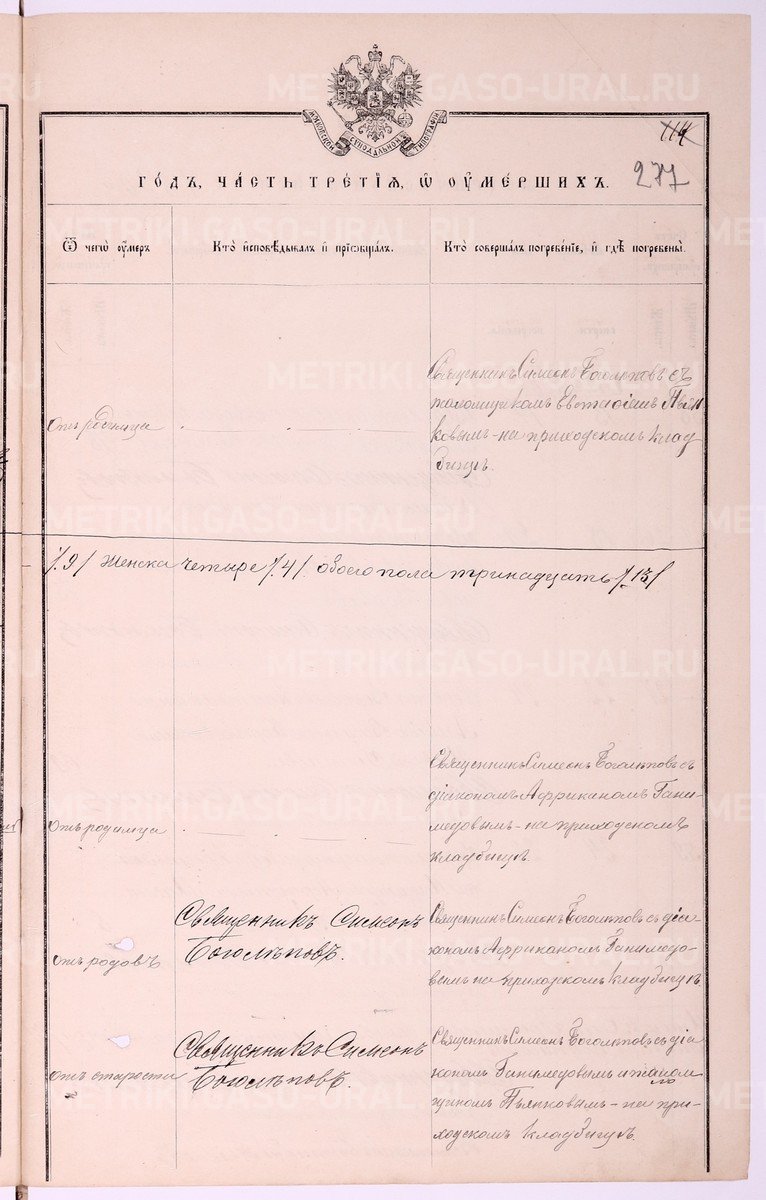 МОСКОВСКОЙ СѴНОДАЛЬНОЙ ТИПОГРАФІИ
114
277
ГО́ДЪ, ЧА́СТЬ ТРЕ́ТІѦ, Ѽ ОУМЕ́РШИХЪ.
Ѿ чегѡ̀ оу́меръ
Кто̀ и҆сповѣ́дывалъ и҆ прїѡбща́лъ.
Кто̀ соверша́лъ погребе́нїе, и҆ гдѣ̀ погребены̀.
Священникъ Симеонъ Боголѣповъ съ
псаломщикомъ Евстафіемъ Пьян-
ковымъ - на приходскомъ клад
бищѣ.
Отъ родимца
/.9/ женска четыре /.4/. обоего пола тринадцать /.13/
Священникъ Симеонъ Боголѣповъ съ
діакономъ Африканомъ Гани-
медовымъ - на приходскомъ
кладбищѣ.
Отъ родимца
Священникъ Симеонъ
Боголѣповъ.
Священникъ Симеонъ Боголѣповъ съ діа
кономъ Африканомъ Ганимедо-
вымъ на приходскомъ кладбищѣ
отъ родовъ
Священникъ Симеонъ
Боголѣповъ.
Священникъ Симеонъ Боголѣповъ съ діа
кономъ Ганимедовымъ и псалом
щикомъ Пьянковымъ - на при-
ходскомъ кладбищѣ.
отъ старости
METRIKI.GASO-URAL.RU